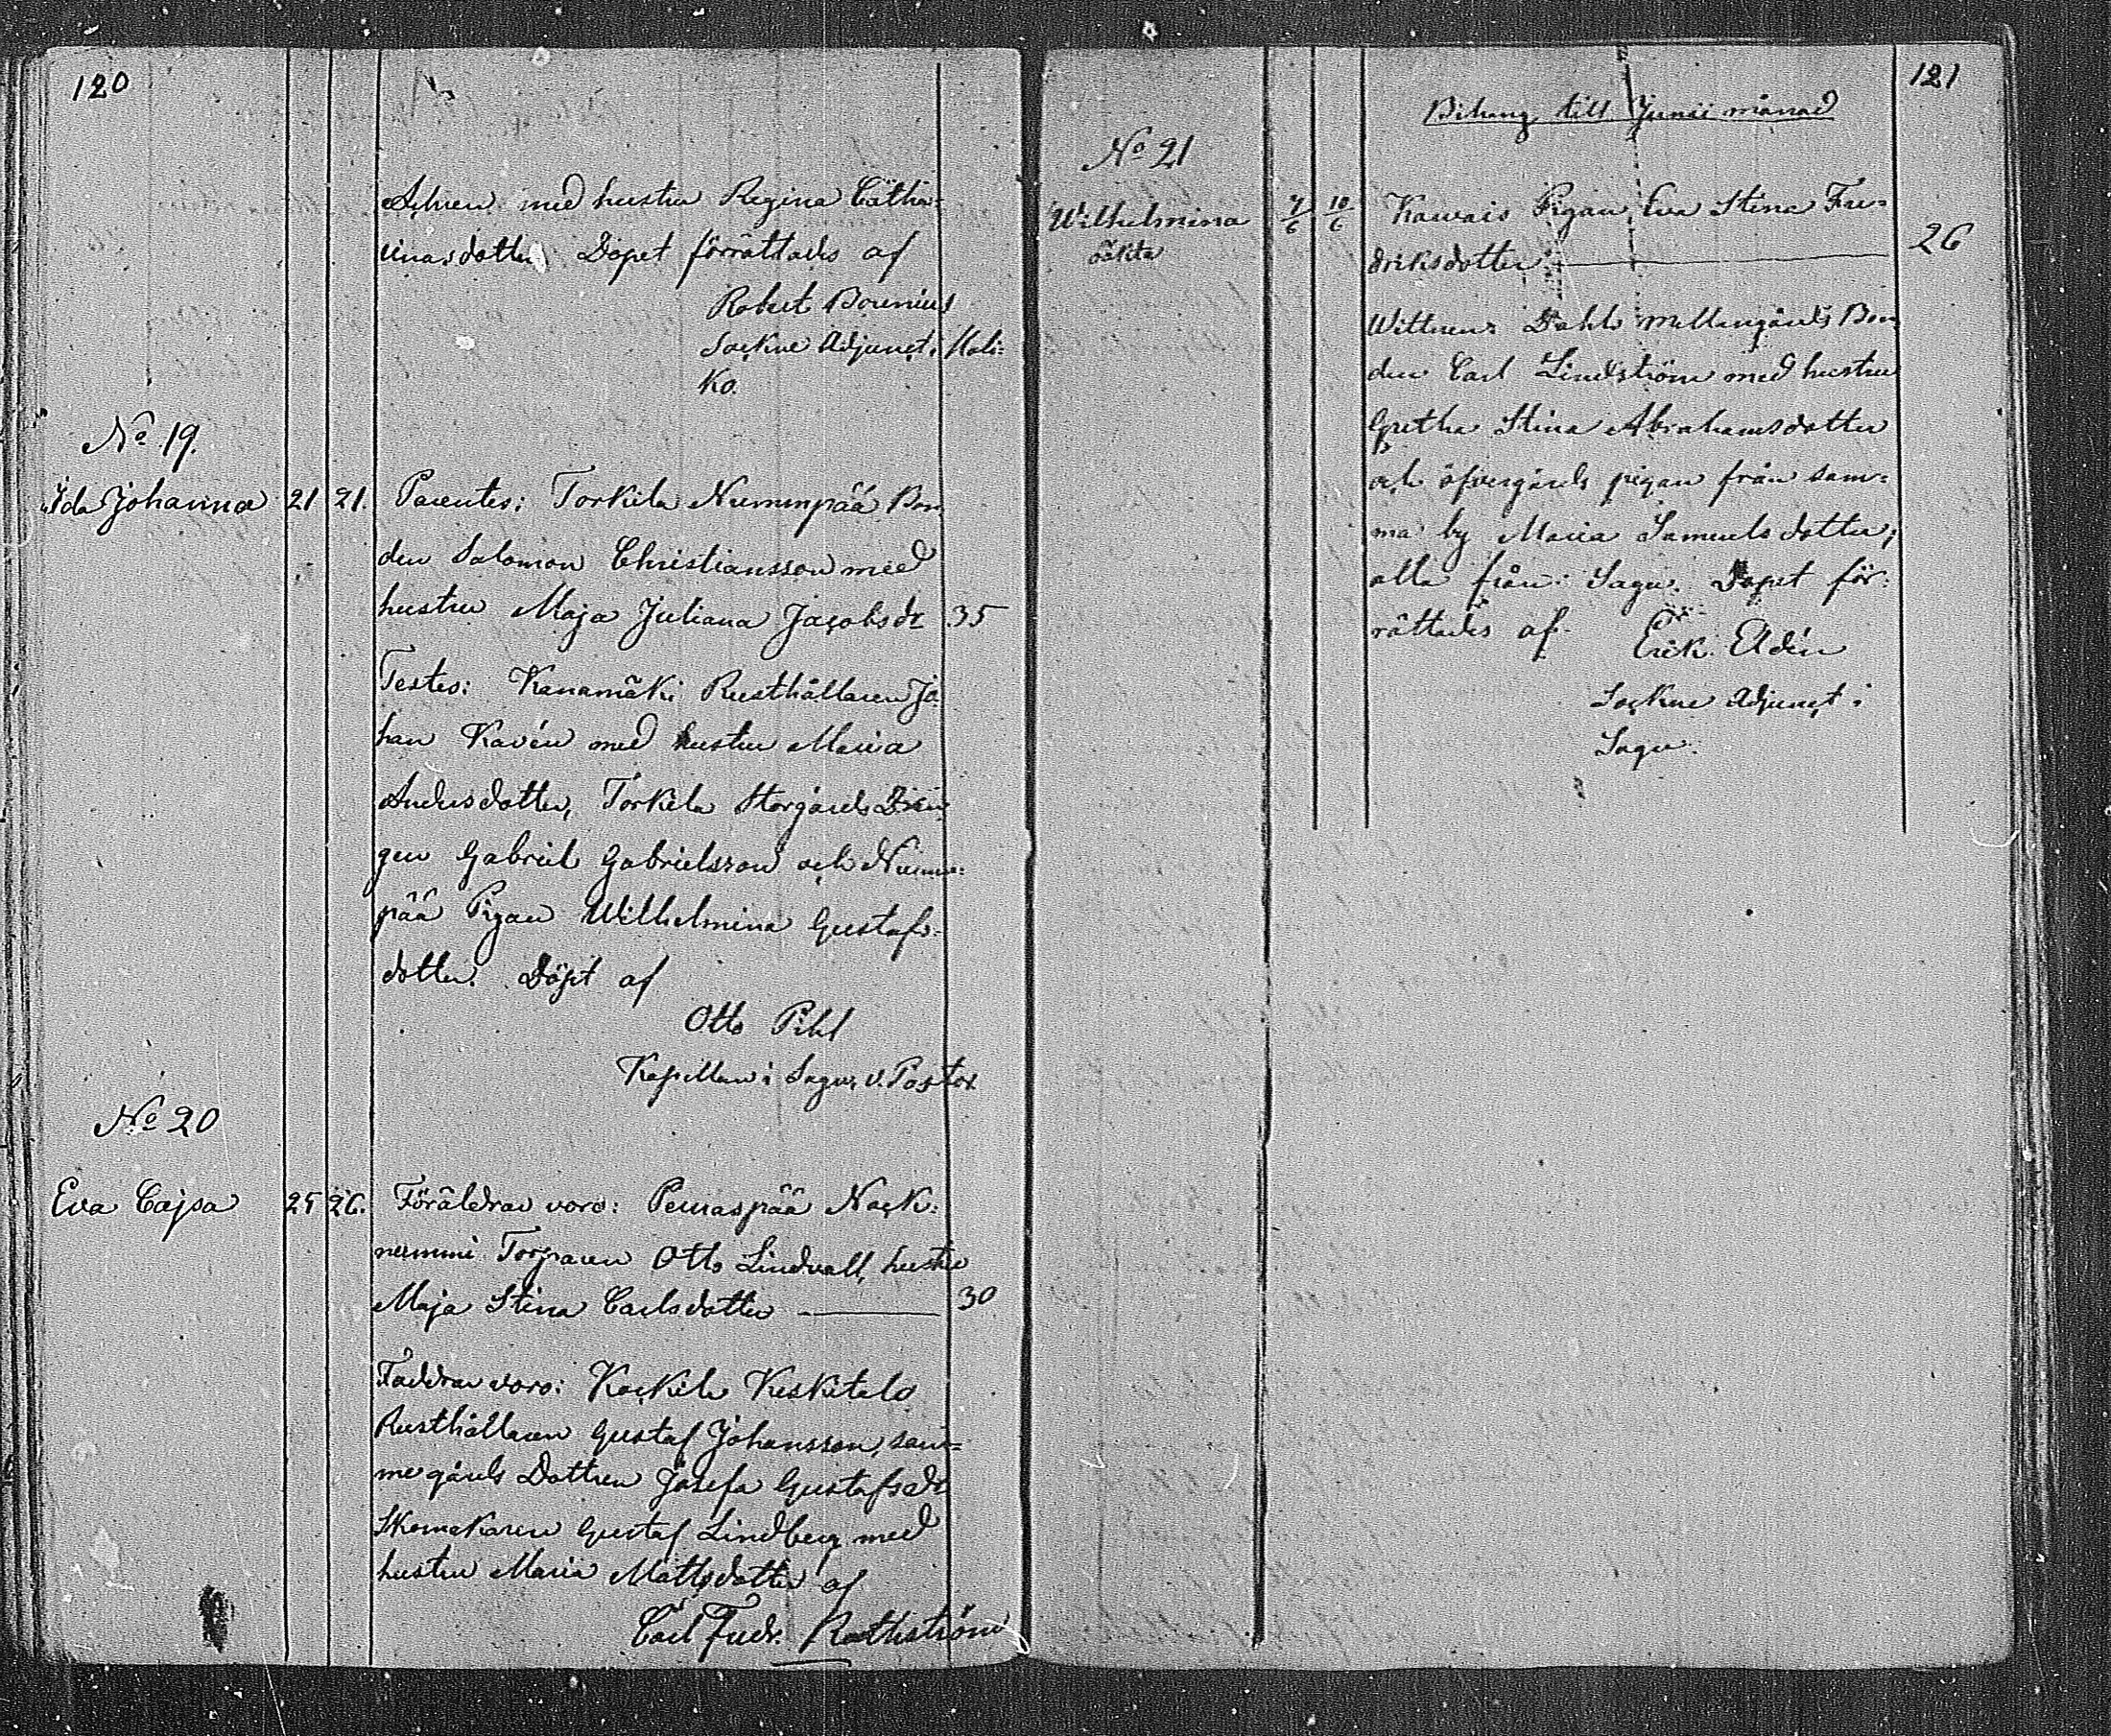 120
Achren med hustru Regina Catha=
rinasdotter. Dopet förrättades af
Robert Borenius
Sockne Adjunct i Hali=
ko.
No 19.
Ida Johanna 21 21. Parentes: Torkila Nummenpää Bon
den Salomon Christiansson med
hustru Maja Juliana Jacobsdr 35
Testes: Kanamäki Rusthållaren Jo=
han Kavén med hustru Maria
Andersdotter, Torkila Storgårds Drän
gen Gabriel Gabrielsson och Numme=
pää Pigan Wilhelmina Gustafs=
dotter. Döpt af
Otto Pihl
Kapellan i Sagu, v. Pastor
No 20
Eva Cajsa 25 26. Föräldrar voro: Pernaspää Nack=
nummi Torparen Otto Lindvall, hustru
Maja Stina Carlsdotter 30
Faddrar voro: Kackila Keskitalo
Rusthållaren Gustaf Johansson, sam=
me gårds Dottren Josefa Gustafsdr
Skomakaren Gustaf Lindberg med
hustru Maria Mattsdotter af
Carl Fredr. Rothström
121
Bihang till Junii månad
No 21
Wilhelmina 7/6 10/6 Kawais Pigan Eva Stina Fre=
oäkta
driksdotter 26
Dahls mellangårds Bon
den Carl Lindström med hustru
Gretha Stina Abrahamsdotter
och öfvergårds pigan från sam=
ma by Maria Samuelsdotter,
alla från Sagu. Dopet för=
rättades af Erik Eldén
Sockne Adjunct i
Sagu.